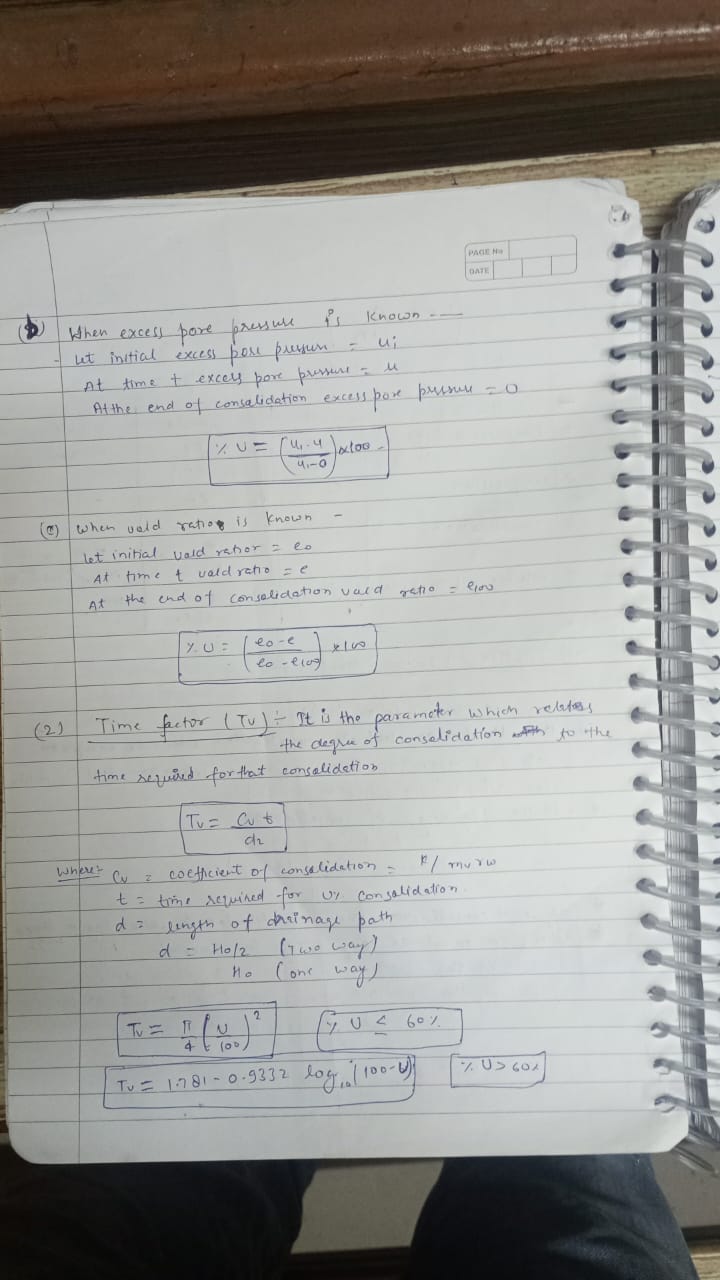 PAGE No
DATE
(b) When excess pore pressure is known -
- let initial excess pore pressure = ui
At time t excess pore pressure = u
At the end of consalidation excess pore pressure = 0
% U = (u₁-u / u₁-0) x100
(c) when void ratios is known -
let initial void ratior = e₀
At time t void ratio = e
At the end of consalidation void ratio = e₁₀₀
% U = (e₀-e / e₀-e₁₀₀) x100
(2) Time factor (Tv) :- It is the parameter which relates
the degree of consalidation to the
time required for that consalidation
Tv = Cv t / d2
Where:- Cv = coefficient of consalidation = k/mvrw
t = time required for U% consalidation
d = length of drainage path
d = Ho/2 (Two way)
Ho (one way)
Tv = π/4 (U/100)² % U ≤ 60%
Tv = 1.781 - 0.9332 log₁₀(100-U) % U > 60%